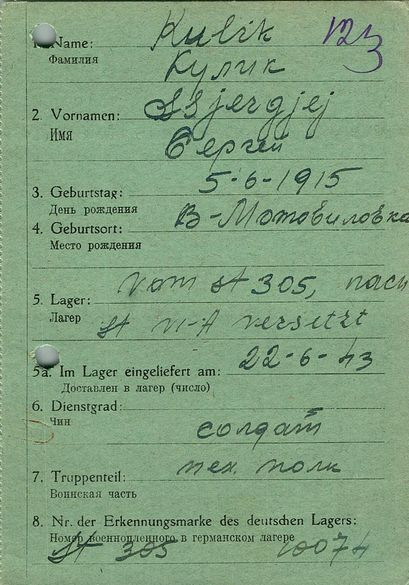 1. Name: Kulik 123
Фамилия Кулик
2. Vornamen: Ssjergjej
Имя Сергей
3. Geburtstag: 5-6-1915
День рождения
4. Geburtsort: В-Мотовиловка
Место рождения
Vom St 305, nach
5. Lager:
Лагер St VI-A versetzt
5a. Im Lager eingeliefert am: 22-6-43
Доставлен в лагер (число)
6. Dienstgrad:
Чин солдат
7. Truppenteil: пех. полк
Воинская часть
8. Nr. der Erkennungsmarke des deutschen Lagers:
Номер военнопленного в германском лагере
St 305 10074